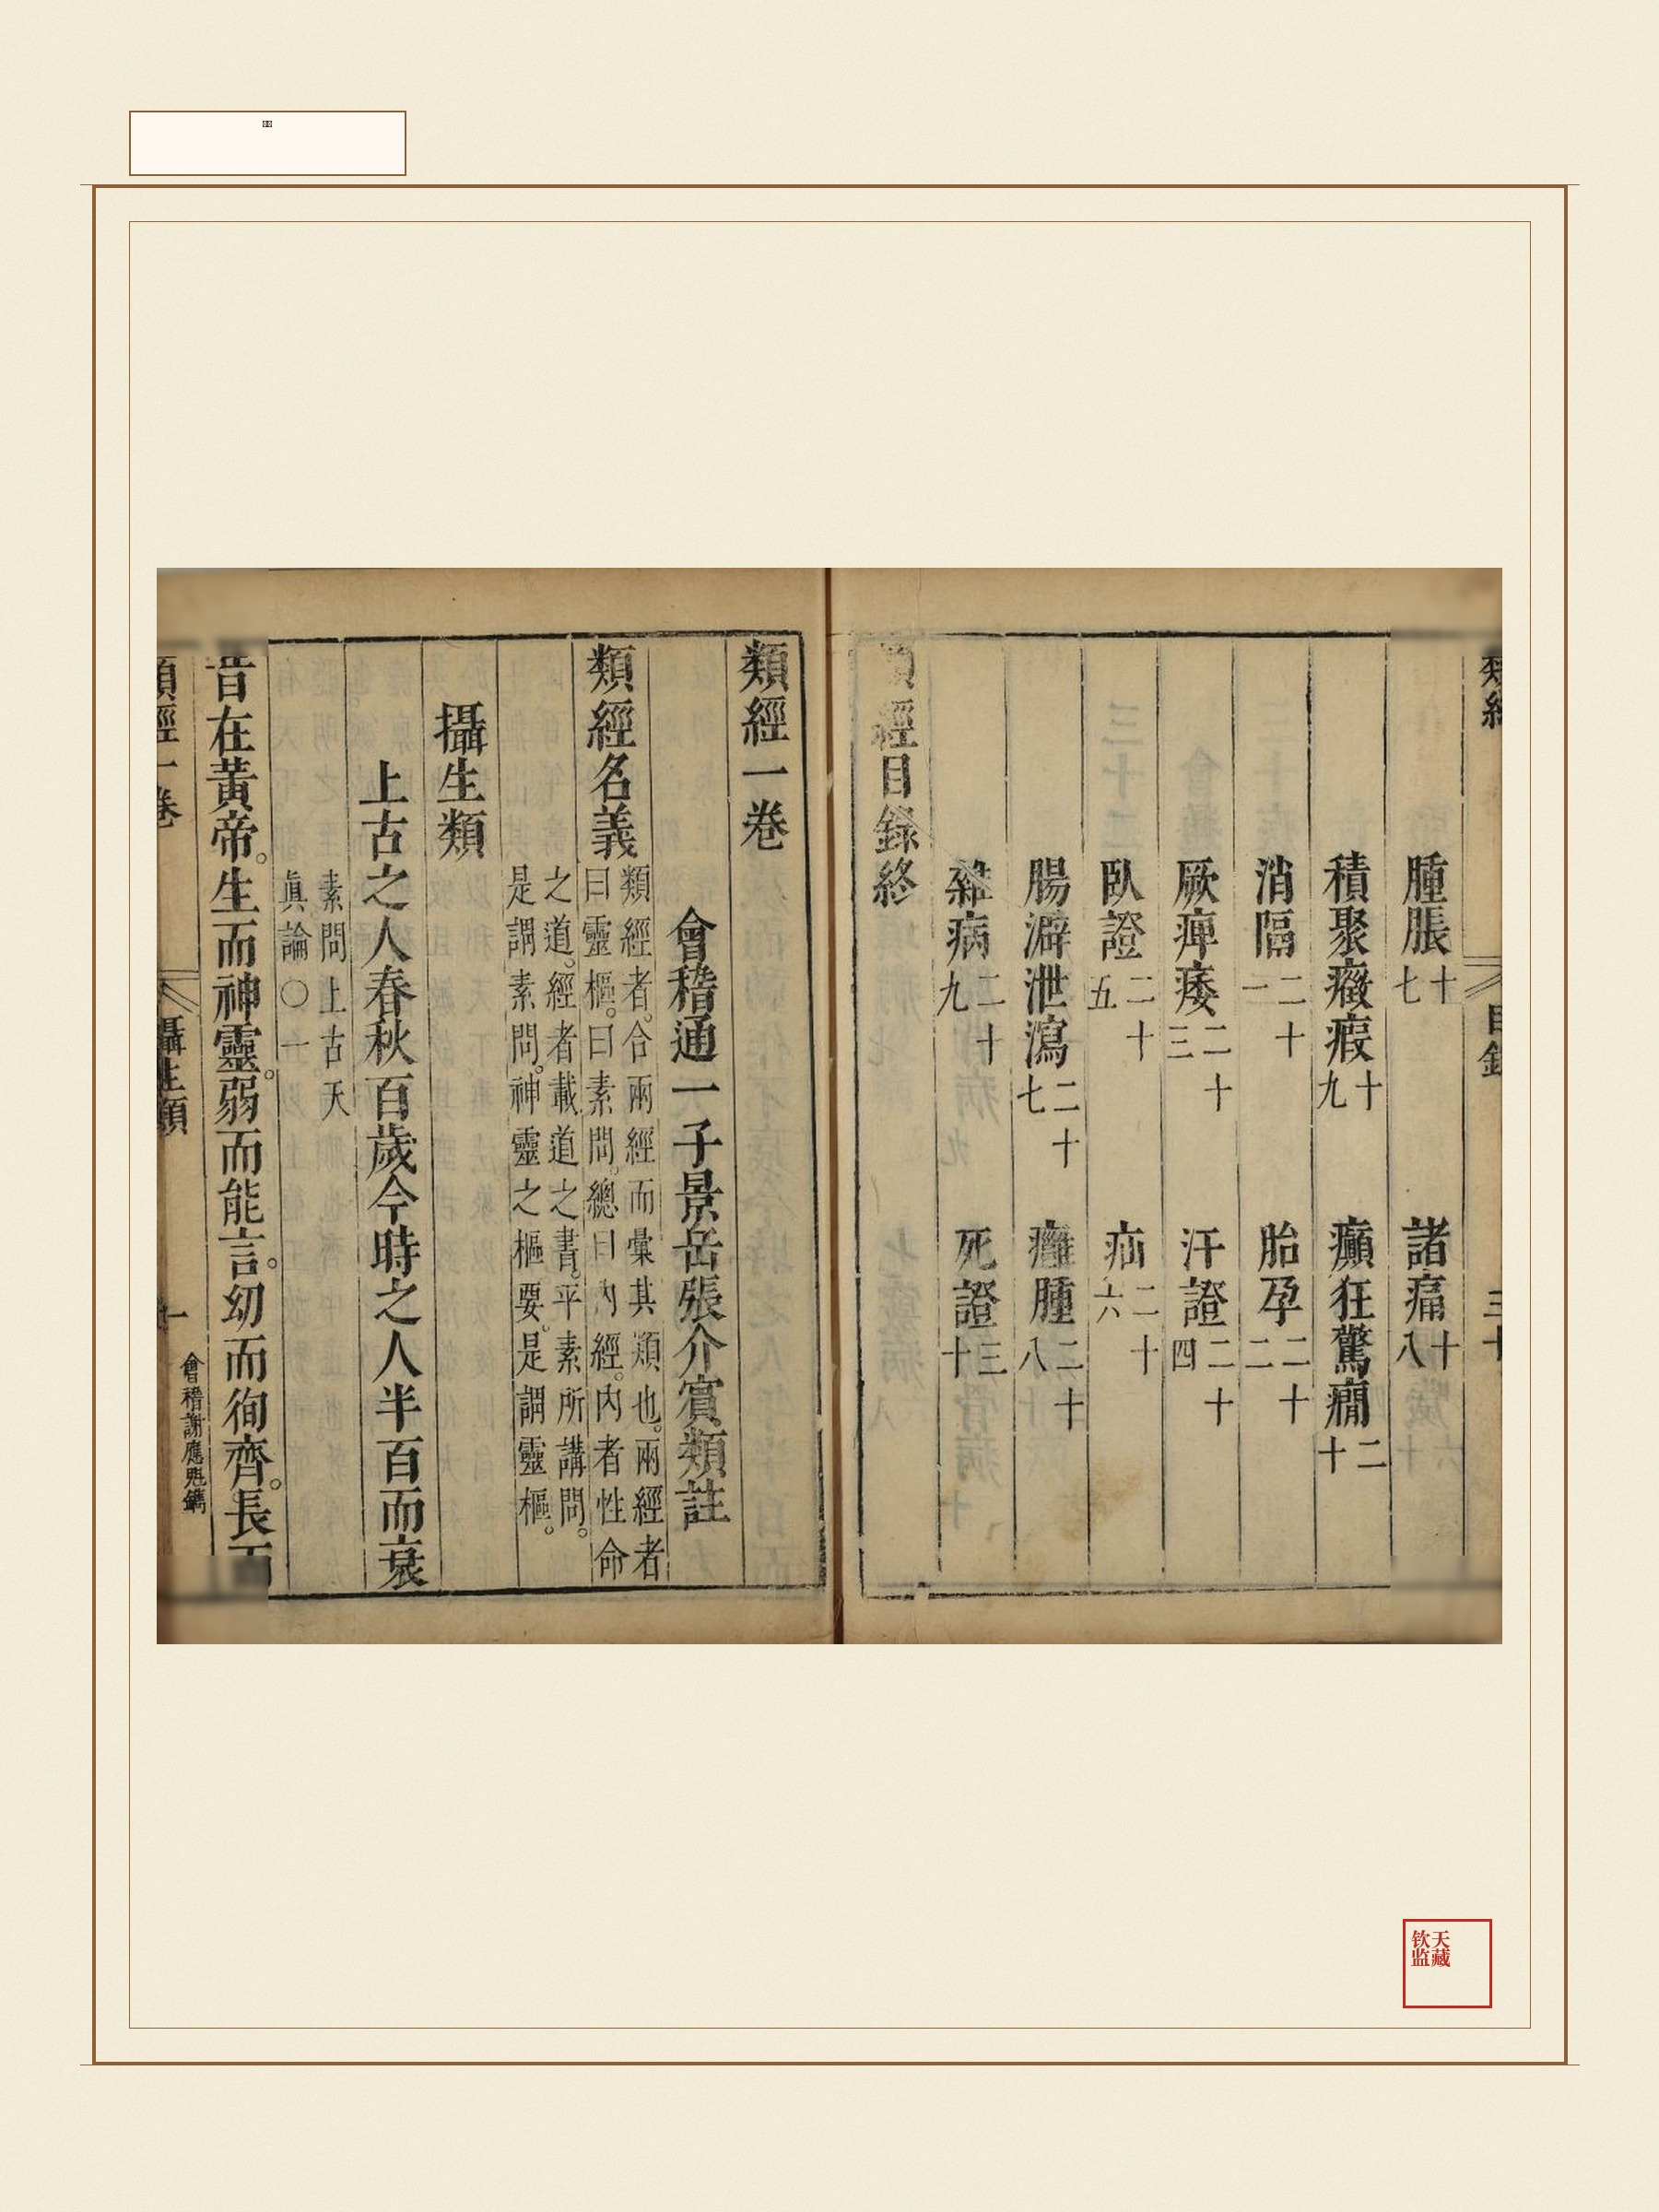 類經
目錄
三十
腫脹十七
諸痛十八
積聚癥瘕十九
癲狂驚癇二十
消隔二十一
胎孕二十二
厥痺痿二十三
汗證二十四
臥證二十五
疝二十六
腸澼泄瀉二十七
癰腫二十八
雜病二十九
死證三十
類經目錄終
類經一卷
會稽通一子景岳張介賓類註
類經名義
類經者。合兩經而彙其類也。兩經者
曰靈樞。曰素問。總曰內經。內者性命
之道。經者載道之書。平素所講問。
是謂素問。神靈之樞要。是謂靈樞。
攝生類
上古之人春秋百歲今時之人半百而衰
素問上古天
眞論〇一
昔在黃帝。生而神靈。弱而能言。幼而徇齊。長而
類經一卷
攝生類
一
會稽謝應魁鐫
天藏
钦监